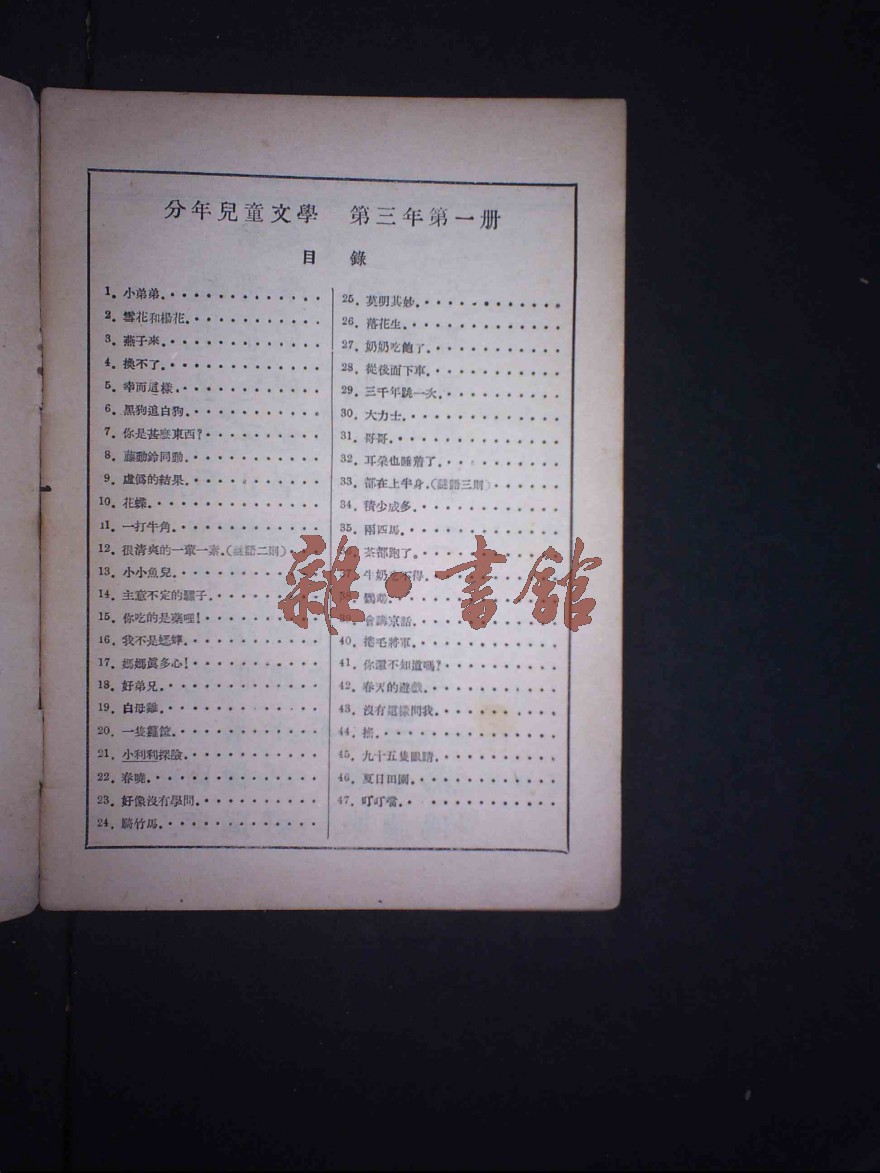 分年兒童文學　第三年第一册
目　錄
1. 小弟弟
2. 雪花和楊花
3. 燕子來
4. 換不了
5. 幸而這樣
6. 黑狗追白狗
7. 你是甚麽東西?
8. 藤動鈴同動
9. 虛僞的結果
10. 花蝶
11. 一打牛角
12. 很清爽的一葷一素.(謎語二則)
13. 小小魚兒
14. 主意不定的騾子
15. 你吃的是藥哩!
16. 我不是蟋蟀
17. 媽媽眞多心!
18. 好弟兄
19. 白母雞
20. 一隻籮筐
21. 小利利探險
22. 春曉
23. 好像沒有學問
24. 騎竹馬
25. 莫明其妙
26. 落花生
27. 奶奶吃飽了
28. 從後面下車
29. 三千年跳一次
30. 大力士
31. 哥哥
32. 耳朵也睡着了
33. 都在上半身.(謎語三則)
34. 積少成多
35. 兩匹馬
36. 茶都跑了
37. 牛奶 不得
38. 鸚鵡
39. 會講京話
40. 捲毛將軍
41. 你還不知道嗎?
42. 春天的遊戲
43. 沒有這樣問我
44.
45. 九十五隻眼睛
46. 夏日田園
47. 叮叮噹
雜·書館